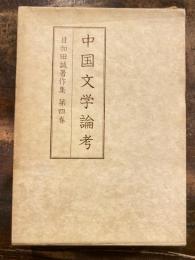 中国文学論考
目加田誠著作集 第四巻